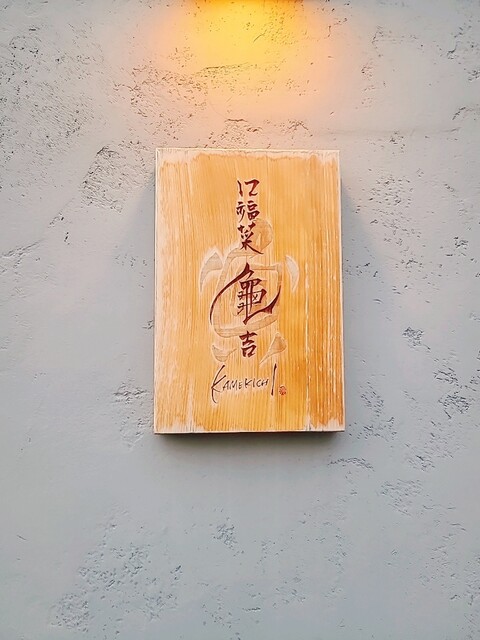 口福菜
龜吉
KAMEKICHI